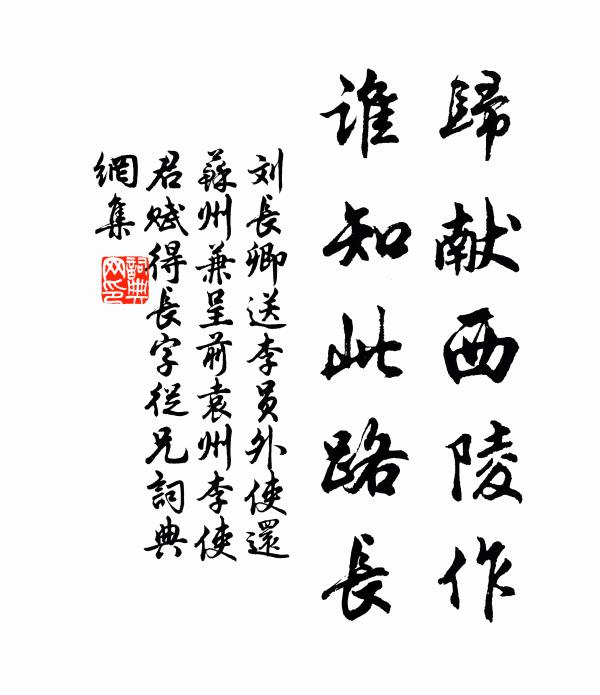 歸献西陵作
谁知此路長
刘長卿送李員外使還
蘇州兼呈前袁州李使
君賦得長字從兄詞典
網集
詞典網印